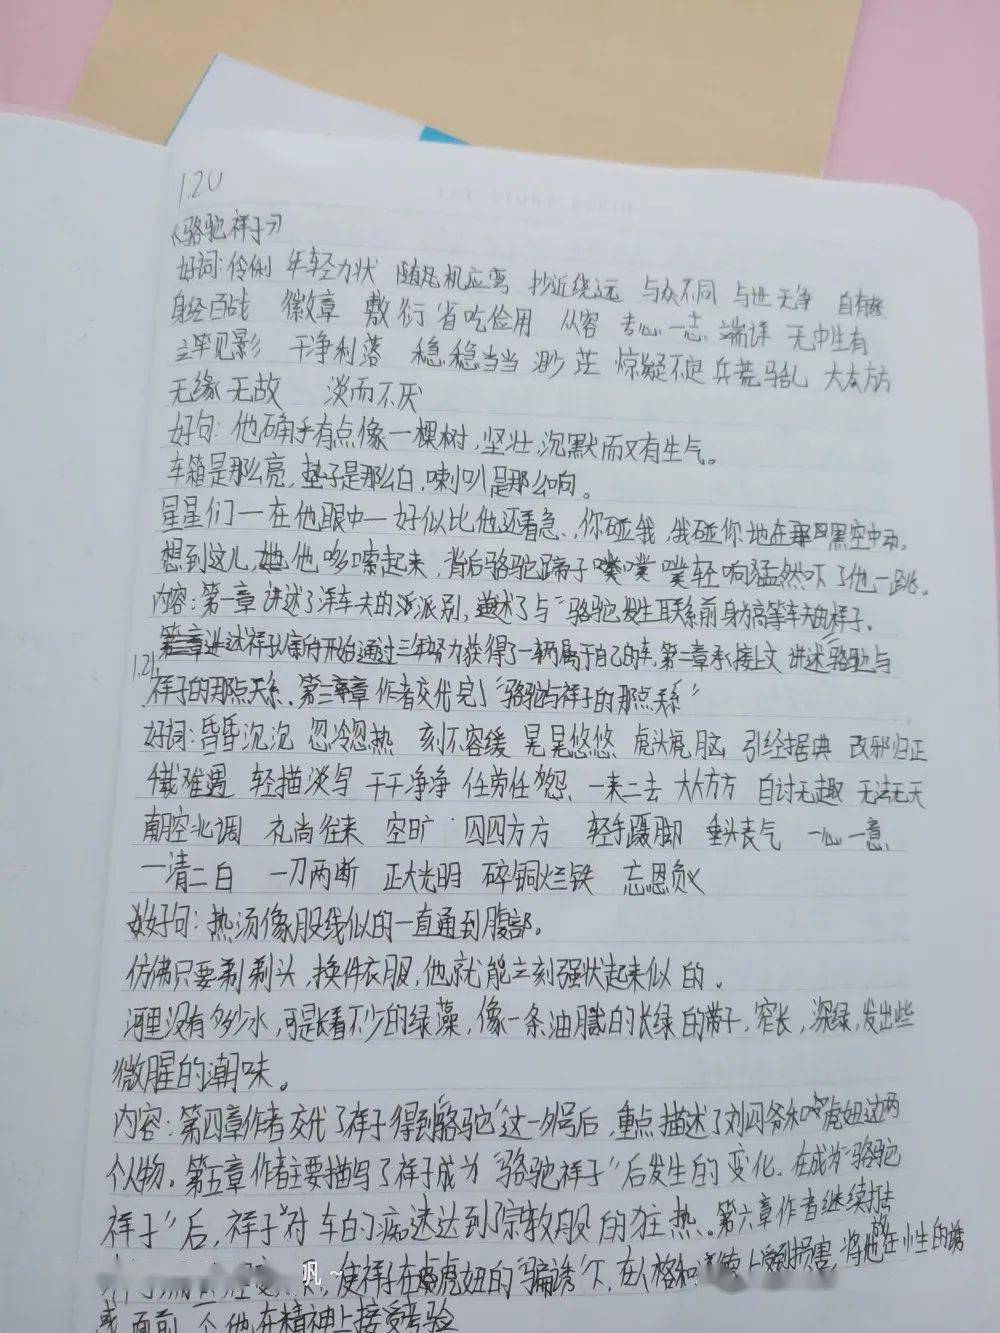 1.20
《骆驼祥子》
好词:伶俐 年轻力状 随机应弯 抄近绕远 与众不同 与世无争 自有
身经百战 徽章 敷衍 省吃俭用 从容 专心一志 端详 无中生有
立竿见影 干净利落 稳稳当当 渺茫 惊疑不定 兵荒马乱 大大方方
无缘无故 淡而不厌
好句:他确乎有点像一棵树,坚壮,沉默而又有生气。
车箱是那么亮,垫子是那么白,喇叭是那么响。
星星们一在他眼中一好似比他还着急,你碰我,我碰你地在黑空中动。
想到这儿,他哆嗦起来,背后骆驼蹄子噗噗轻响猛然吓了他一跳。
内容:第一章讲述了洋车夫的派别,述了与“骆驼发生联系前身为高等车夫的祥子。
祥子从开始通过三年努力获得了一辆属于自己的车,第二章承接上文讲述“骆驼与
1.21
祥子的那点关系,第三章作者交代完了“骆驼与祥子的那点关系”
好词:昏昏沉沉 忽冷忽热 刻不容缓 晃晃悠悠 虎头虎脑 引经据典 改邪归正
千载难遇 轻描淡写 干干净净 任劳任怨 一来二去 大大方方 自讨无趣 无法无天
南腔北调 礼尚往来 空旷 四四方方 轻手蹑脚 垂头丧气 一心一意
一清二白 一刀两断 正大光明 碎铜烂铁 忘恩负义
好句:热汤像股线似的一直通到腹部。
仿佛只要剃剃头,换件衣服,他就能立刻强状起来似的。
河里没有多少水,可是长着不少的绿藻,像一条油腻的长绿的带子,窄长,深绿,发出些
微腥的潮味。
内容:第四章作者交代了祥子得到“骆驼”这一外号后,重点描述了刘四爷和虎妞这两
个人物。第五章作者主要描写了祥子成为“骆驼祥子”后发生的变化,在成为“骆驼
祥子”后,祥子对车的痴迷达到了宗教般的狂热。第六章作者继续
使祥子在虎妞的“骗诱”下,在人格和道德上受到损害,将他放在小生的诱
惑面前,令他在精神上接受考验